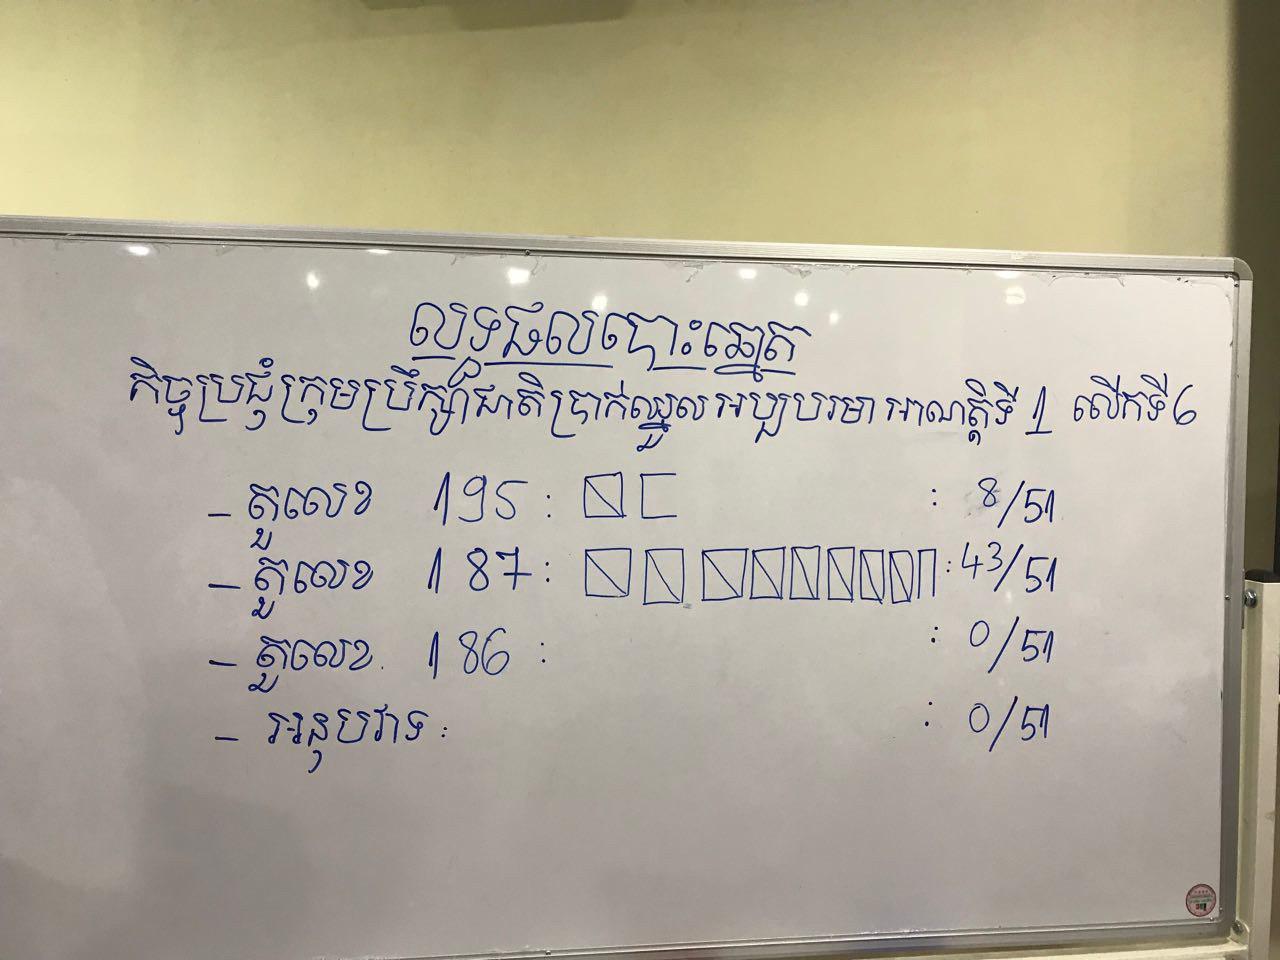 លទ្ធផលបោះឆ្នោត
កិច្ចប្រជុំក្រុមប្រឹក្សាជាតិប្រាក់ឈ្នួលអប្បបរមា អាណត្តិទី 1 លើកទី 6
- តួលេខ 195 : : 8/51
- តួលេខ 187 : : 43/51
- តួលេខ 186 : : 0/51
- អនុបវាទ : : 0/51